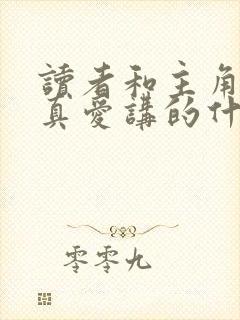 讀者和主角
真愛講的什
零零九